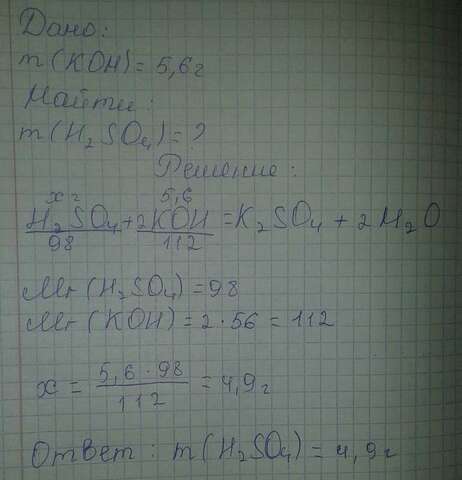 Дано:
m(KOH)=5,6г
Найти:
m(H₂SO₄)=?
Решение:
x г 5,6
H₂SO₄+2KOH=K₂SO₄+2H₂O
98 112
Mr(H₂SO₄)=98
Mr(KOH)=2·56=112
x = 5,6·98/112 = 4,9г
Ответ: m(H₂SO₄)=4,9г